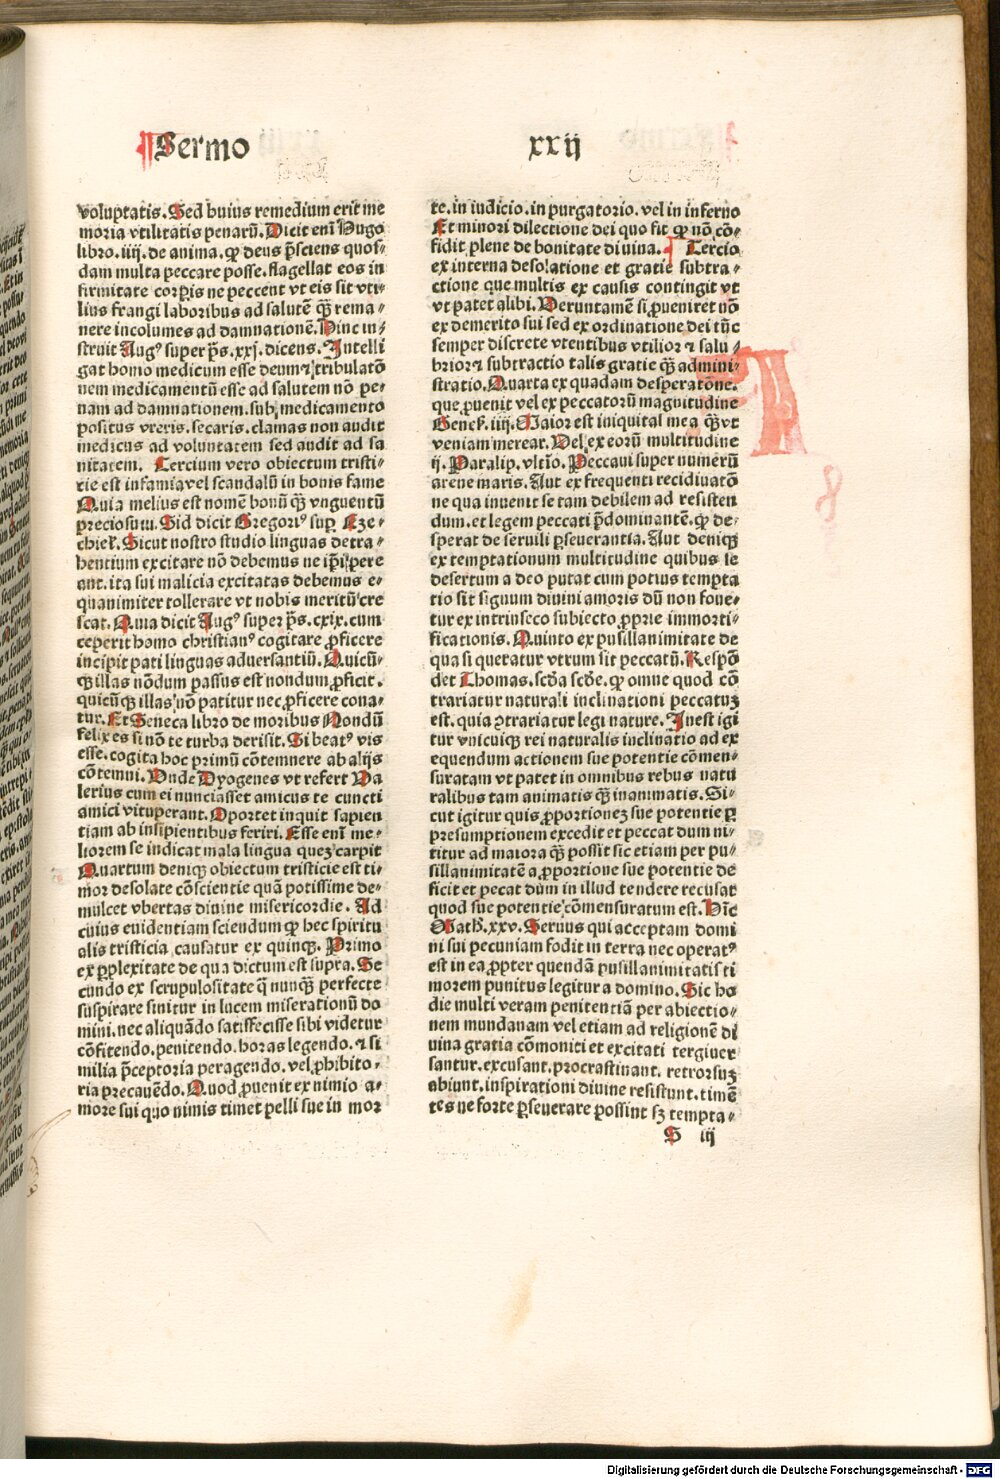 Sermo
xxij
voluptatis. Sed huius remedium erit me
moria vtilitatis penarū. Dicit enī Hugo
libro. iiij. de anima. ꝙ deus p̄sciens quos-
dam multa peccare posse. flagellat eos in
firmitate corpis ne peccent vt eis sit vti-
lius frangi laboribus ad salutē q̄ꝫ rema-
nere incolumes ad damnationē. Hinc in-
struit Augꝰ super ps. xxj. dicens. Intelli
gat homo medicum esse deum ⁊ tribulatō
nem medicamentū esse ad salutem nō pe-
nam ad damnationem. sub medicamento
positus vreris. secaris. clamas non audit
medicus ad voluntatem sed audit ad sa
nitatem. Tercium vero obiectum tristi-
cie est infamia vel scandalū in bonis fame
Quia melius est nomē bonū q̄ꝫ vnguentū
preciosum. Sid dicit Gregoriꝰ suꝑ Eze-
chieł. Sicut nostro studio linguas detra-
hentium excitare nō debemus ne ip̄i pere
ant. ita sui malicia excitatas debemus e-
quanimiter tollerare vt nobis meritū cre
scat. Quia dicit Augꝰ super ps. cxix. cum
ceperit homo christianꝰ cogitare ꝓficere
incipit pati linguas aduersantiū. Quicū-
qꝫ illas nōdum passus est nondum ꝓficit.
quicūqꝫ illas nō patitur nec ꝓficere cona-
tur. Et Seneca libro de moribus Nondū
felix es si nō te turba derisit. Si beatꝰ vis
esse. cogita hoc primū cōtemnere ab alijs
cōtemni. Unde Dyogenes vt refert Va
lerius cum ei nunciasset amicus te cuncti
amici vituperant. Oportet inquit sapien
tiam ab insipientibus feriri. Esse enī me-
liorem se indicat mala lingua queꝫ carpit
Quartum deniqꝫ obiectum tristicie est ti-
mor desolate cōscientie quā potissime de-
mulcet vbertas diuine misericordie. Ad
cuius euidentiam sciendum ꝙ hec spiritu
alis tristicia causatur ex quinqꝫ. Primo
ex ꝑplexitate de qua dictum est supra. Se
cundo ex scrupulositate q̄ nunqꝫ perfecte
suspirare sinitur in lucem miserationū do
mini. nec aliquādo satisfecisse sibi videtur
cōfitendo. penitendo. horas legendo. ⁊ si
milia p̄ceptoria peragendo. vel ꝓhibito-
ria precauēdo. Quod ꝓuenit ex nimio a-
more sui quo nimis timet pelli sue in mor
te. in iudicio. in purgatorio. vel in inferno
Et minori dilectione dei quo fit ꝙ nō cō-
fidit plene de bonitate diuina. Tercio
ex interna desolatione et gratie subtra-
ctione que multis ex causis contingit vt
vt patet alibi. Veruntamē si ꝓueniret nō
ex demerito sui sed ex ordinatione dei tūc
semper discrete vtentibus vtilior ⁊ salu-
brior ⁊ subtractio talis gratie q̄ꝫ admini-
stratio. Quarta ex quadam desperatōne.
que ꝓuenit vel ex peccatorū magnitudine
Geneß. iiij. Maior est iniquitas mea q̄ꝫ vt
veniam merear. Vel ex eorū multitudine
ij. Paralip. vltīo. Peccaui super numerū
arene maris. Aut ex frequenti recidiuatō
ne qua inuenit se tam debilem ad resisten
dum. et legem peccati p̄dominantē. ꝙ de-
sperat de seruili ꝑseuerantia. Aut deniqꝫ
ex temptationum multitudine quibus se
desertum a deo putat cum potius tempta
tio sit signum diuini amoris dū non foue-
tur ex intrinseco subiecto ꝓprie immorti-
ficationis. Quinto ex pusillanimitate de
qua si queratur vtrum sit peccatū. Respō
det Thomas. scđa scđe. ꝙ omne quod cō
trariatur naturali inclinationi peccatuꝫ
est. quia ꝯtrariatur legi nature. Inest igi
tur vnicuiqꝫ rei naturalis inclinatio ad ex
equendum actionem sue potentie cōmen-
suratam vt patet in omnibus rebus natu
ralibus tam animatis q̄ꝫ inanimatis. Si-
cut igitur quis ꝓportioneꝫ sue potentie ꝑ
presumptionem excedit et peccat dum ni-
titur ad maiora q̄ꝫ possit sic etiam per pu-
sillanimitatē a ꝓportione sue potentie de
ficit et pecat dum in illud tendere recusat
quod sue potentie cōmensuratum est. Hīc
Math. xxv. Seruus qui acceptam domi
ni sui pecuniam fodit in terra nec operatꝰ
est in ea ꝓpter quendā pusillanimitatis ti
morem punitus legitur a domino. Sic ho
die multi veram penitentiā per abiectio-
nem mundanam vel etiam ad religionē di
uina gratia cōmoniti et excitati tergiuer
santur. excusant. procrastinant. retrorsuꝫ
abiunt. inspirationi diuine resistunt. timē
tes ne forte ꝑseuerare possint sꝫ tempta-
S iij
Digitalisierung gefördert durch die Deutsche Forschungsgemeinschaft - DFG